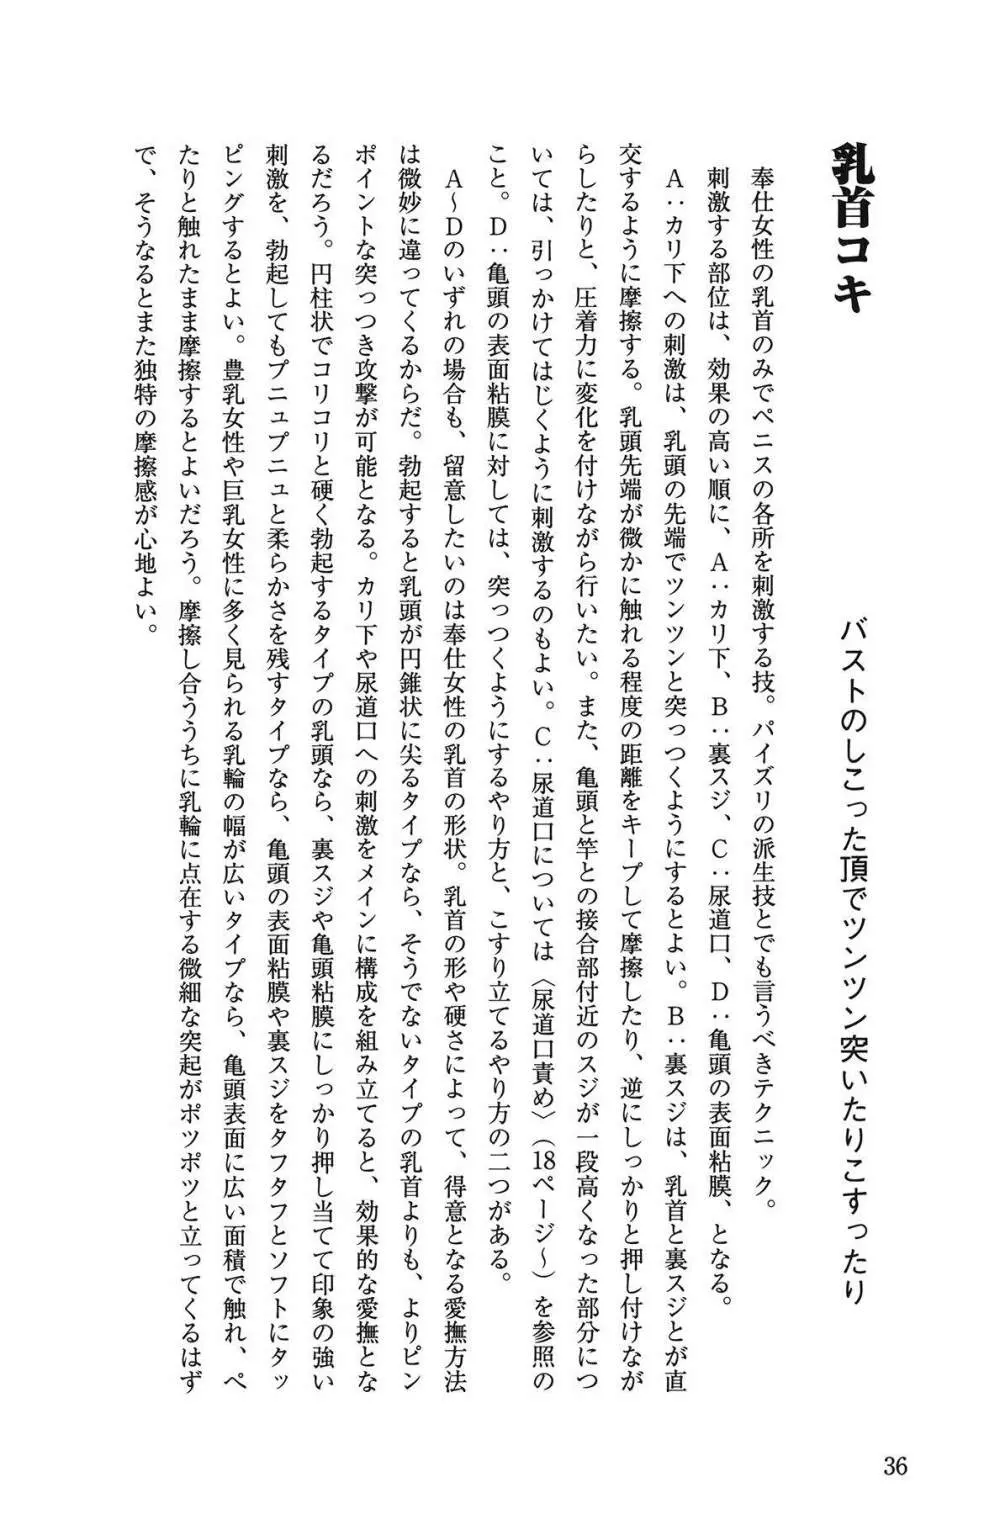 乳首コキ
バストのしこった頂でツンツン突いたりこすったり
奉仕女性の乳首のみでペニスの各所を刺激する技。パイズリの派生技とでも言うべきテクニック。
刺激する部位は、効果の高い順に、A：カリ下、B：裏スジ、C：尿道口、D：亀頭の表面粘膜、となる。
A：カリ下への刺激は、乳頭の先端でツンツンと突っつくようにするとよい。B：裏スジは、乳首と裏スジとが直
交するように摩擦する。乳頭先端が微かに触れる程度の距離をキープして摩擦したり、逆にしっかりと押し付けなが
らしたりと、圧着力に変化を付けながら行いたい。また、亀頭と竿との接合部付近のスジが一段高くなった部分につ
いては、引っかけてはじくように刺激するのもよい。C：尿道口については〈尿道口責め〉（18ページ〜）を参照の
こと。D：亀頭の表面粘膜に対しては、突っつくようにするやり方と、こすり立てるやり方の二つがある。
A〜Dのいずれの場合も、留意したいのは奉仕女性の乳首の形状。乳首の形や硬さによって、得意となる愛撫方法
は微妙に違ってくるからだ。勃起すると乳頭が円錐状に尖るタイプなら、そうでないタイプの乳首よりも、よりピン
ポイントな突っつき攻撃が可能となる。カリ下や尿道口への刺激をメインに構成を組み立てると、効果的な愛撫とな
るだろう。円柱状でコリコリと硬く勃起するタイプの乳頭なら、裏スジや亀頭粘膜にしっかり押し当てて印象の強い
刺激を、勃起してもプニュプニュと柔らかさを残すタイプなら、亀頭の表面粘膜や裏スジをタフタフとソフトにタッ
ピングするとよい。豊乳女性や巨乳女性に多く見られる乳輪の幅が広いタイプなら、亀頭表面に広い面積で触れ、ペ
たりと触れたまま摩擦するとよいだろう。摩擦し合ううちに乳輪に点在する微細な突起がポツポツと立ってくるはず
で、そうなるとまた独特の摩擦感が心地よい。
36